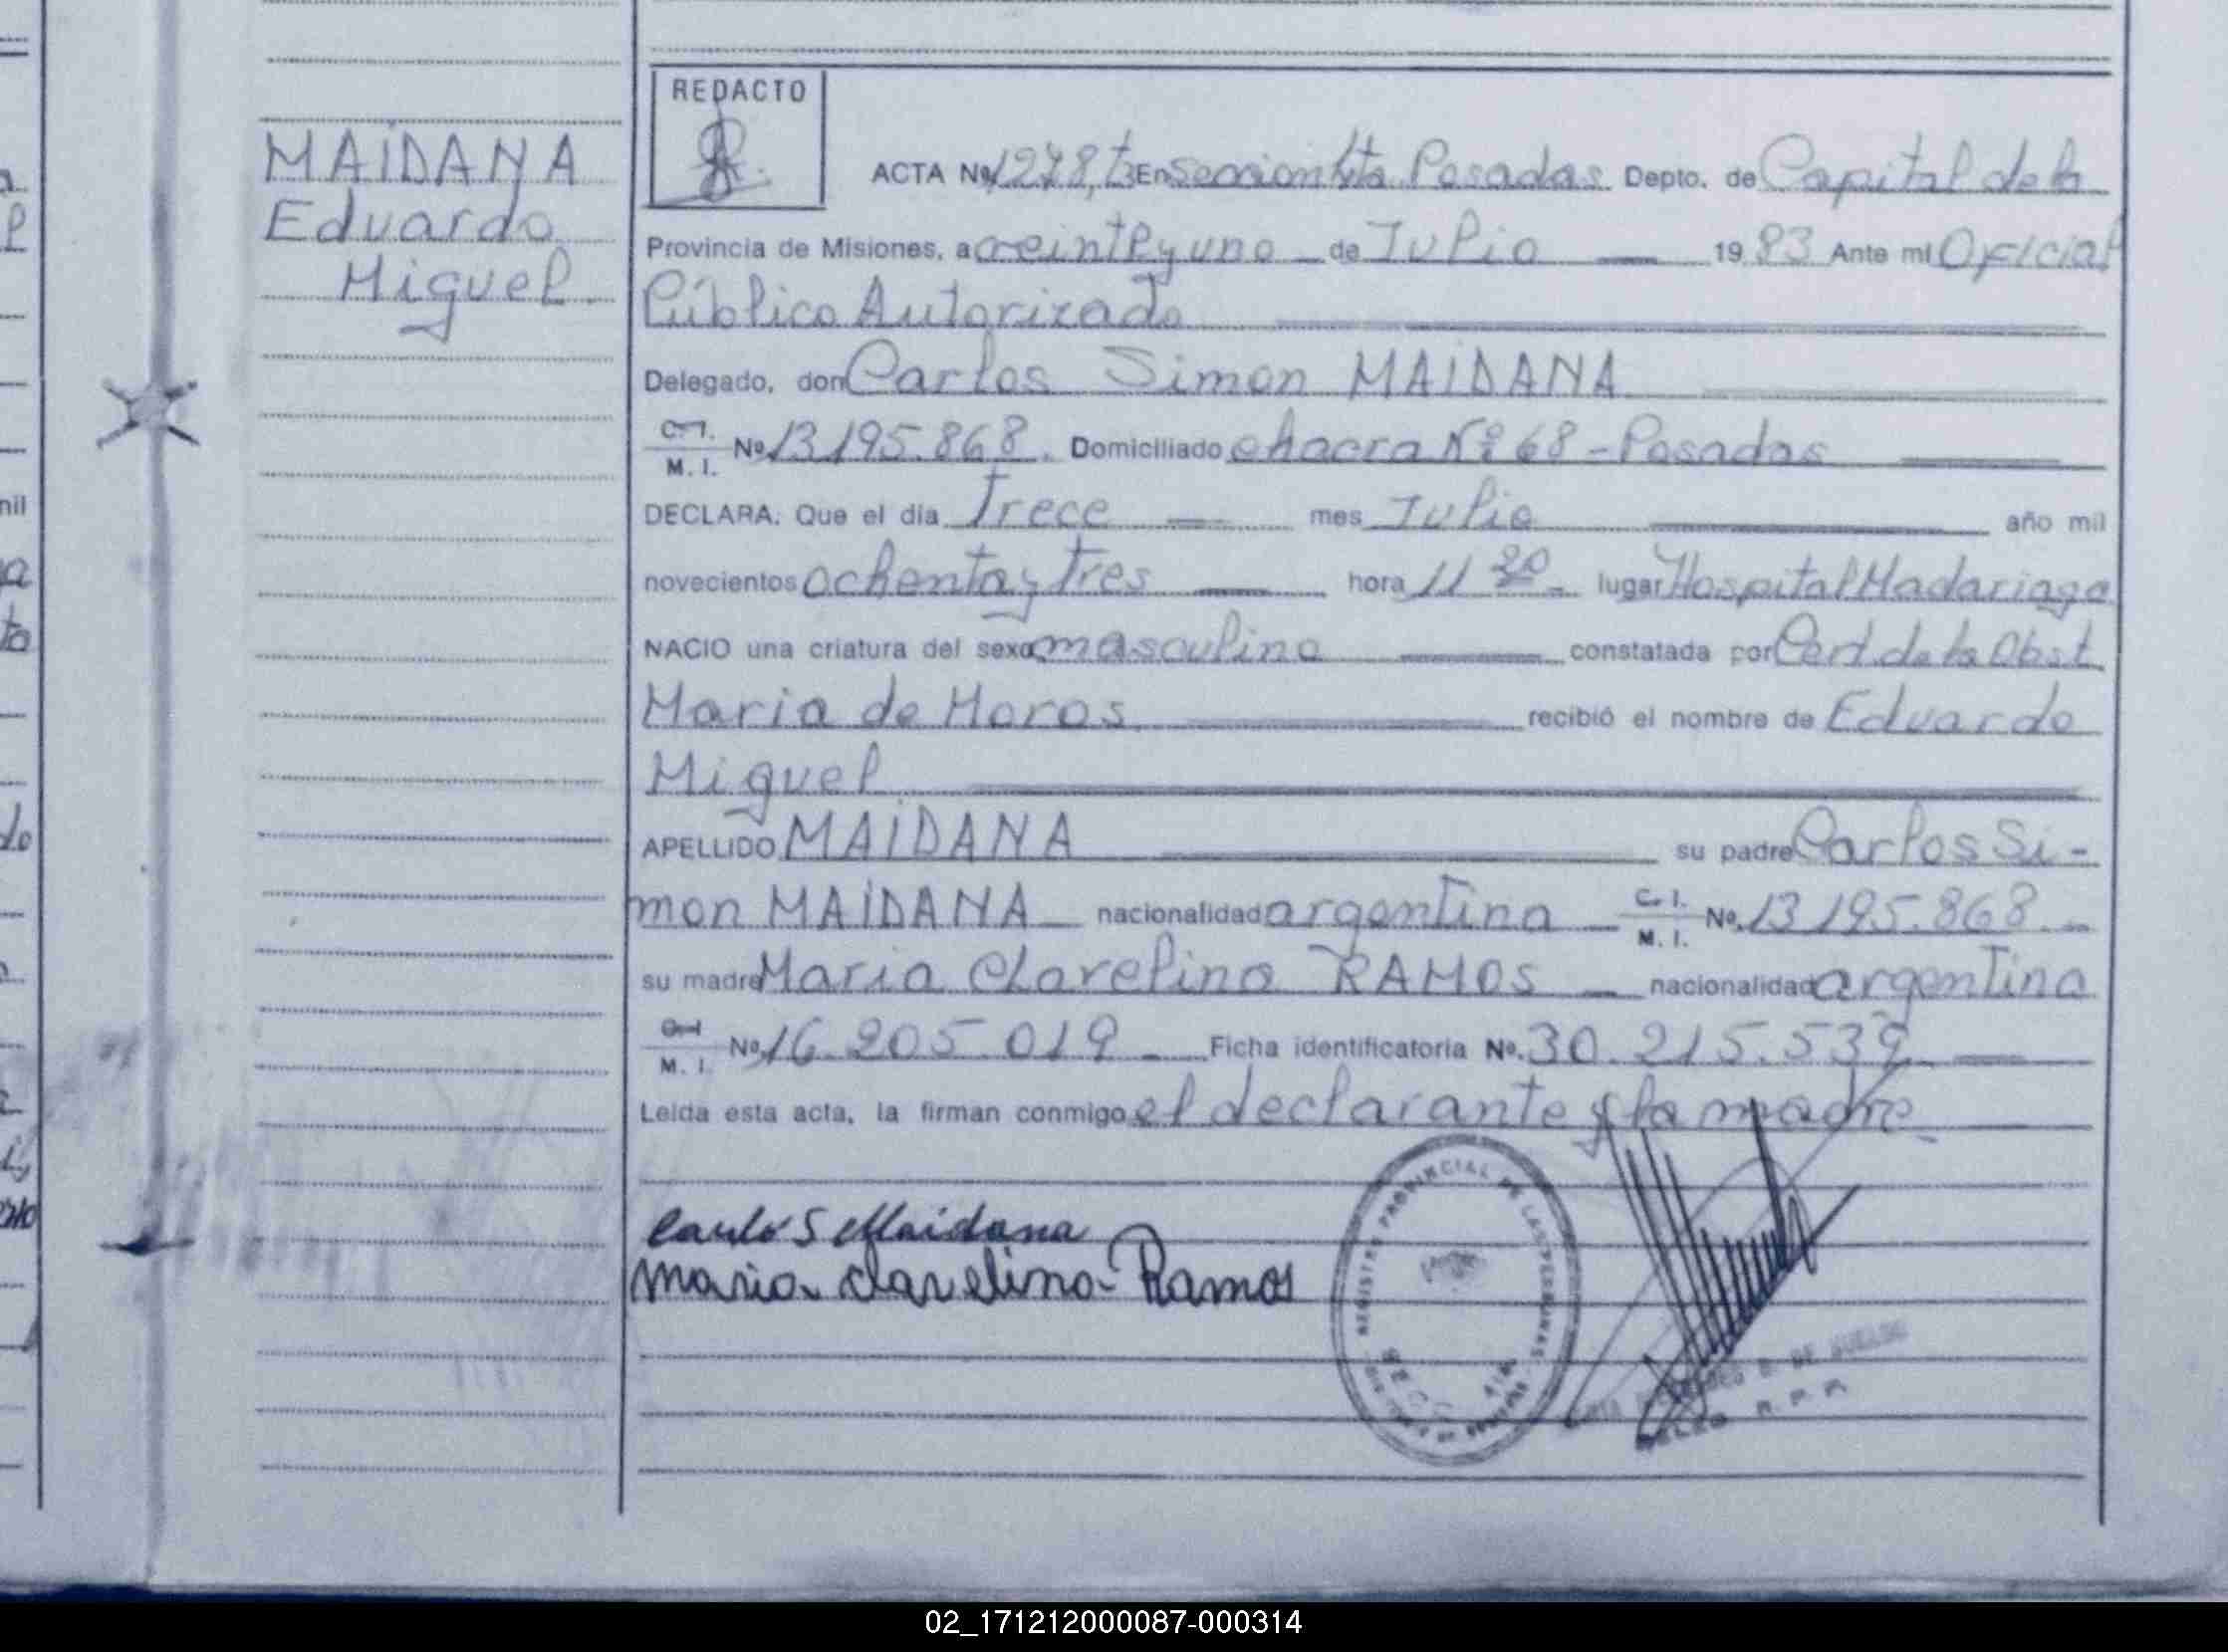 MAIDANA
Eduardo
Miguel
REDACTO
ACTA Nº 1278, En Seccion 4ta Posadas Depto. de Capital de la
Provincia de Misiones, a veinte y uno de Julio 1983 Ante mi Oficial
Público Autorizado
Delegado, don Carlos Simon MAIDANA
C.I. M.I. Nº 13.195.868. Domiciliado chacra Nº 68 - Posadas
DECLARA: Que el día Trece mes Julio año mil
novecientos ochenta y Tres hora 11 20 lugar Hospital Madariaga
NACIO una criatura del sexo masculino constatada por Cert. de la Obst
Maria de Moros recibió el nombre de Eduardo
Miguel
APELLIDO MAIDANA su padre Carlos Si-
mon MAIDANA nacionalidad argentina C.I. M.I. Nº 13.195.868.
su madre Maria Clarelina RAMOS nacionalidad argentina
C.I. M.I. Nº 16.205.019 Ficha identificatoria Nº. 30.215.539
Leída esta acta, la firman conmigo el declarante y la madre
Carlos S Maidana
Maria Clarelina Ramos
REGISTRO PROVINCIAL DE LAS PERSONAS
R. P. P.
02_171212000087-000314